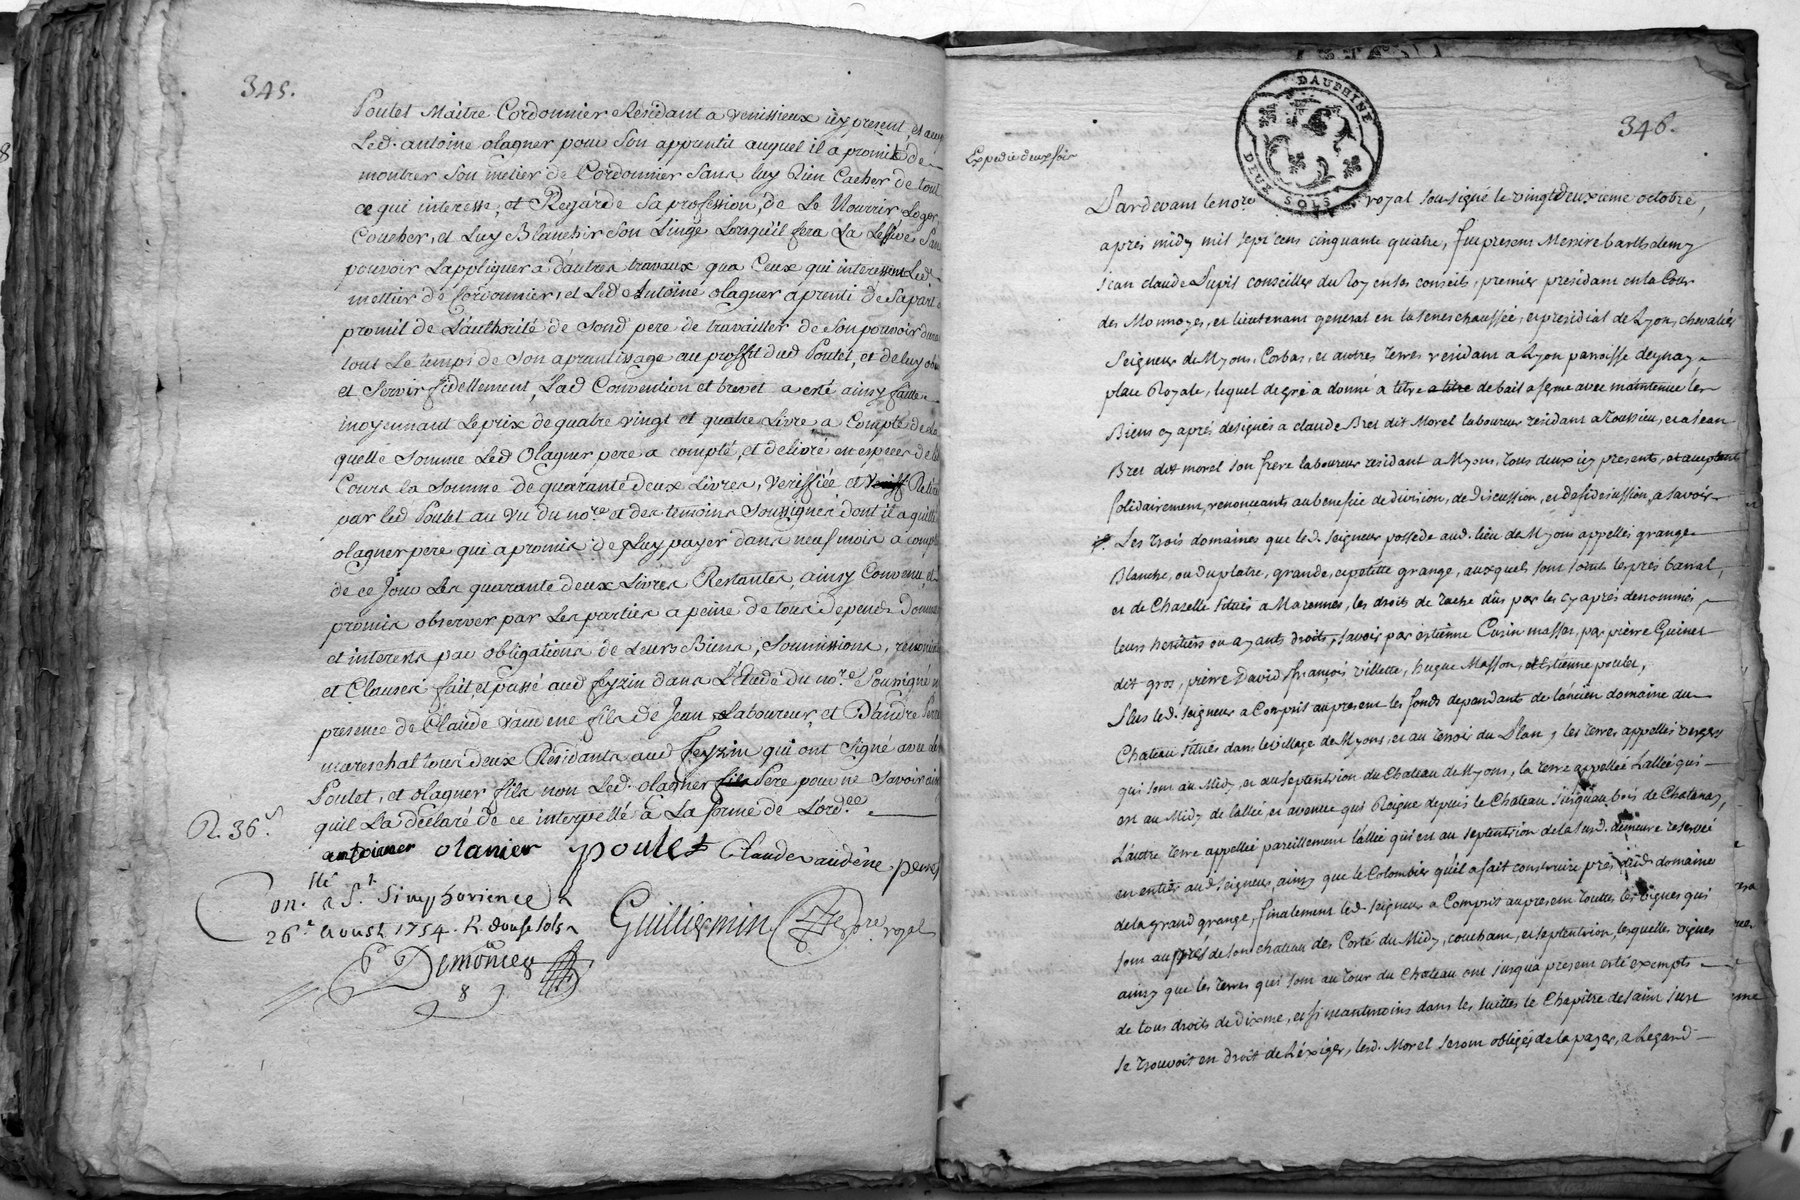 345.
Poulet Maitre Cordonnier Résidant a venissieux icy present, et
Led. antoine olagner pour Son apprentis auquel il a promit de
montrer son metier de Cordonnier Sans luy Rien Cacher de tout
ce qui interesse, et Regarde Sa profession, de Le Nourrir, Loger,
Coucher, et Luy Blanchir Son Linge Lorsqu'il fera La Lessive Sans
pouvoir Lappliquer a dautres travaux qua Ceux qui interessent Led.
mettier de Cordonnier, et Led. Antoine olagner aprenti de Sa part a
promit de L'authorité de Sond. pere de travailler de Son pouvoir
tout Le temps de Son aprantissage au proffit dud. Poulet, et de luy
et Servir fidellement, Lad. Convention et brevet a esté ainsy faitte
moyennant Le prix de quatre vingt et quatre Livres a Compte de La
quelle Somme Led. Olagner pere a compté, et delivré en especes de
Cours la Somme de quarante deux Livres, veriffiée et Retirée
par led. Poulet au vu du nore. et des temoins Soussignés dont il a quitté
olagner pere qui a promis de Luy payer dans neuf mois a compter
de ce Jour Les quarante deux Livres Restantes, ainsy Convenu, et
promis observer par Les parties a peine de tous depends Dommages
et interests par obligations de Leurs Biens, Soumissions, renonciations
et Clauses fait et passé aud. feyzin dans L'Etude du nore. Soussigné en
presence de Claude vaudene fils de Jean Laboureur, et D'andré
mareschal tous deux Résidants aud. feyzin qui ont Signé avec
Poulet, et olagner fils non Led. olagner fils Pere pour ne Savoir ainsy
quil La déclaré de ce interpellé à La forme de L'ordce.
R. 36.s
antoiner olanier poulet Claude vaudéne
Guilliermin nore. royal
Con.llé a St. Simphorience
26e. Aoust 1754. R. douse sols
Demoncey
346.
DAUPHINE
DEUX SOLS
Expedié deux fois
Pardevant le nore. royal sousigné le vingtdeuxieme octobre,
aprés midy mil sept cens cinquante quatre, fut present Messire barthelemy
jean claude Pupil conseiller du Roy en ses conseils, premier presidant en la Cour
des Monnoyes, et lieutenant general en la seneschaussée, et presidial de Lyon, chevalier
Seigneur de Myons, Corbas, et autres terres residant a Lyon paroisse deynay
place Royale, lequel de gré a donné a titre a titre de bail a ferme avec maintenue les
Biens cy aprés designés a claude Bret dit Morel laboureur residant a Toussieu, et a jean
Bret dit morel son frere laboureur residant a Myons, tous deux icy presents, et acceptant
solidairement, renonceants au benefice de division, de discussion, et desidision, a savoir
Les trois domaines que led. seigneur possede aud. lieu de Myons appellés grange
Blanche, ou du platre, grande, et petitte grange, auxquels sont joints les prés barral,
et de Chazelle situés a Marennes, les droits de tache dûs par les cy aprés denommés,
leurs heritiers ou ayants droits, savoir par estienne Cusin masson, par pierre Guinet
dit gros, pierre David, françois villette, hugue Masson, et Estienne poulet,
Plus led. seigneur a Compris au present les fonds dependants de l'ancien domaine du
Chateau situés dans le village de Myons, et au terroir du Plan, les terres appellés vergers
qui sont au Midy, et au septentrion du Chateau de Myons, la terre appellée Lallée qui
est au Midy de lallée, et avenue qui Regne depuis le Chateau jusquau bois de Chatanay,
L'autre terre appellée pareillement l'allée qui est au septentrion de la susd. demeure reservée
en entier aud. seigneur, ainsy que le Colombier qu'il a fait construire prés dud. domaine
de la grand grange, finalement led. seigneur a Compris au present toutes les vignes qui
sont auprés de son chateau des Cotté du Midy, couchant, et septentrion, lesquelles vignes
ainsy que les terres qui sont au tour du Chateau ont jusqua present esté exempts
de tous droits de dixme, et si neantmoins dans les suittes le Chapitre de saint just
se trouvoit en droit de L'exiger, lesd. Morel seront obligés de la payer, a Legard